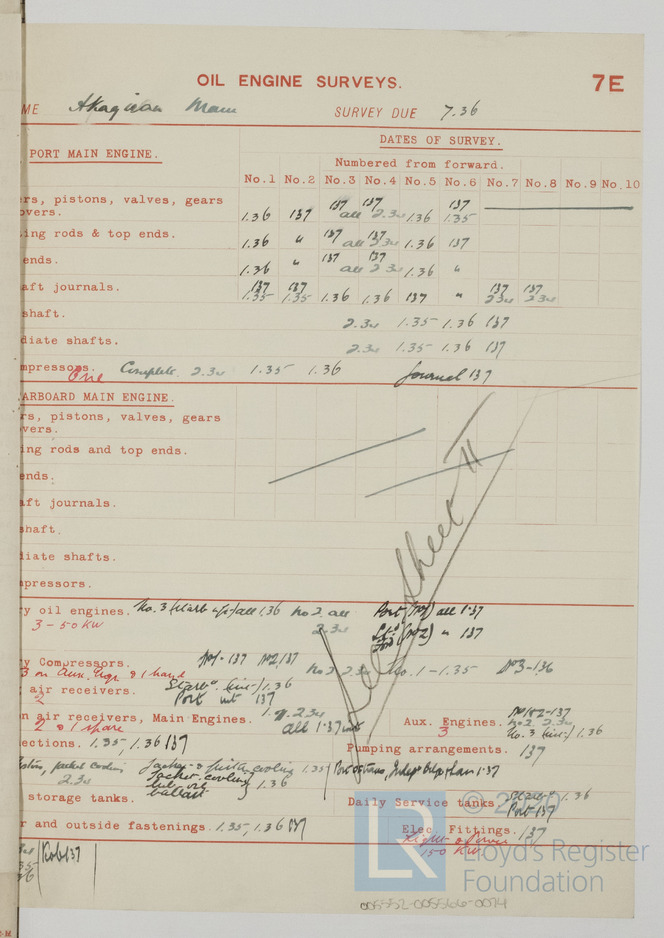 OIL ENGINE SURVEYS. 7E
ME Akagisan Maru SURVEY DUE 7.36
DATES OF SURVEY.
PORT MAIN ENGINE.
Numbered from forward.
No.1 No.2 No.3 No.4 No.5 No.6 No.7 No.8 No.9 No.10
rs, pistons, valves, gears 137 137 137
overs. 1.36 137 all 2.34 1.36 1.35
ing rods & top ends. 1.36 " 137 all 137 2.34 1.36 137
ends. 1.36 " 137 all 137 2.34 1.36 "
aft journals. 137 137 137 137
1.35 1.35 1.36 1.36 137 " 2.34 2.34
shaft. 2.34 1.35 1.36 137
diate shafts. 2.34 1.35 1.36 137
mpressors. Complete. 2.34 1.35 1.36 Journal 137
One
ARBOARD MAIN ENGINE.
rs, pistons, valves, gears
vers.
ing rods and top ends.
ends.
aft journals.
shaft.
diate shafts.
pressors.
See Sheet II
y oil engines. No. 3 all 1.36 No 2 all 2.34 Port (No1) all 1.37
3 - 50 KW (No2) " 137
y Compressors. No1 - 137 No2 137 No 2 2.34 No. 1 - 1.35 No3 - 1.36
3 on Aux. Engs. & 1 hand
air receivers. Starbd 1.36
2 Port 137
n air receivers, Main Engines. 2.34 all 1.37
2 & 1 spare
Aux. Engines. No 1 & 2 - 137
3 No.2 2.34
No. 3 1.36
ections. 1.35, 1.36 137 Pumping arrangements. 137
jacket cooling 2.34 Jacket & piston cooling 1.35
Jacket cooling
ballast 1.36
storage tanks. Daily Service tanks. Starbd 1.36
Port 137
r and outside fastenings. 1.35, 1.36 137 Elec. Fittings. 137
Light & Power
150 KW.
© 2020
LR
Lloyd's Register
Foundation
005552-005566-0074